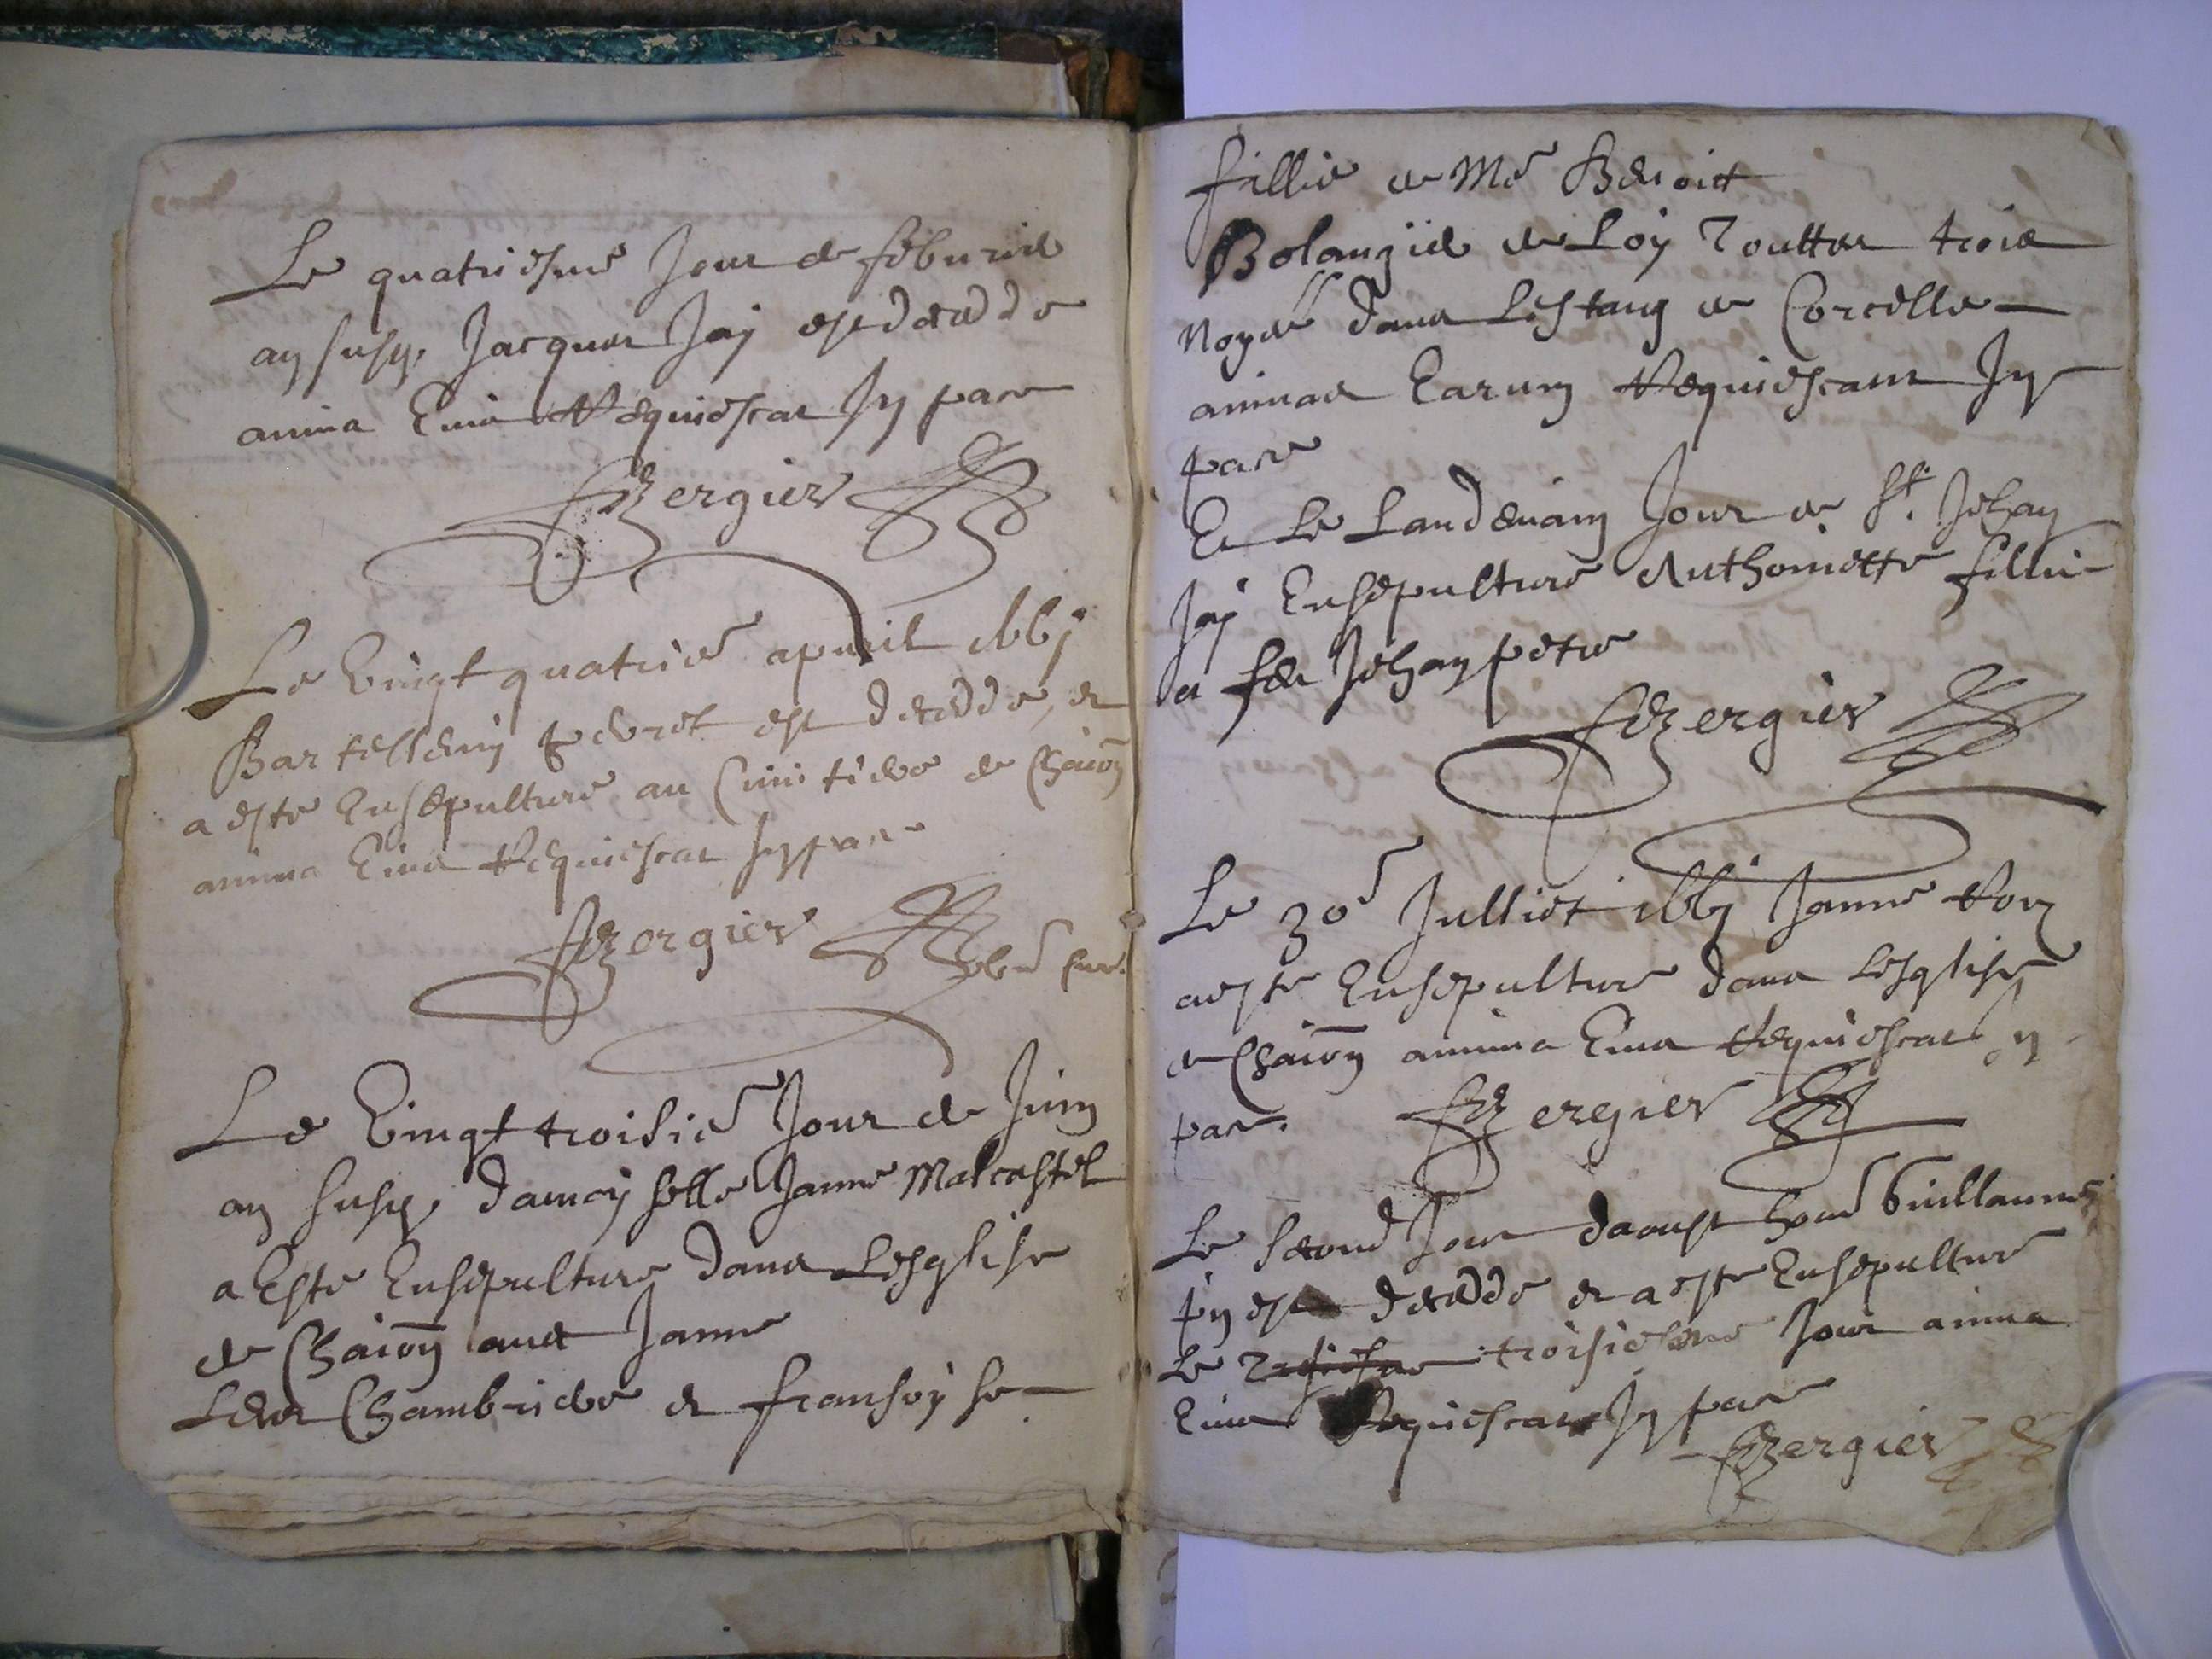 Le quatriesme Jour de febvrie
an susd. Jacques Jay est decedde
anima Eius Requiescat In pace
Bergier
Le Vingt quatrie apvril
Bartellemy est decedde, et
a este Ensepulture au Cimitiere de Chaion
anima Eius Requiescat In pace
Bergier
Le Vingt troisie Jour de Juin
an susd. damoyselle Janne Malcastel
a Este Ensepulture dans Lesglise
de Chaion avec Janne
Leur Chambriere et fransoyse
fillie de Me Benoict
Bolangie de Loy Touttes trois
Noyes dans Lestang de Corcelle
animae Earum Requiescant In
pace
Et Le Landemain Jour de St. Jehan
Jay Ensepulture Anthoinette fillie
a feu Jehan petie
Bergier
Le 30e Julliet Janne
a este Ensepulture dans Lesglise
de Chaion anima Eius Requiescat In
pace. Bergier
Le second Jour daoust Guillaume
est decedde et a este Ensepulture
Le troisiesme Jour anima
Eius Requiescat In pace
Bergier